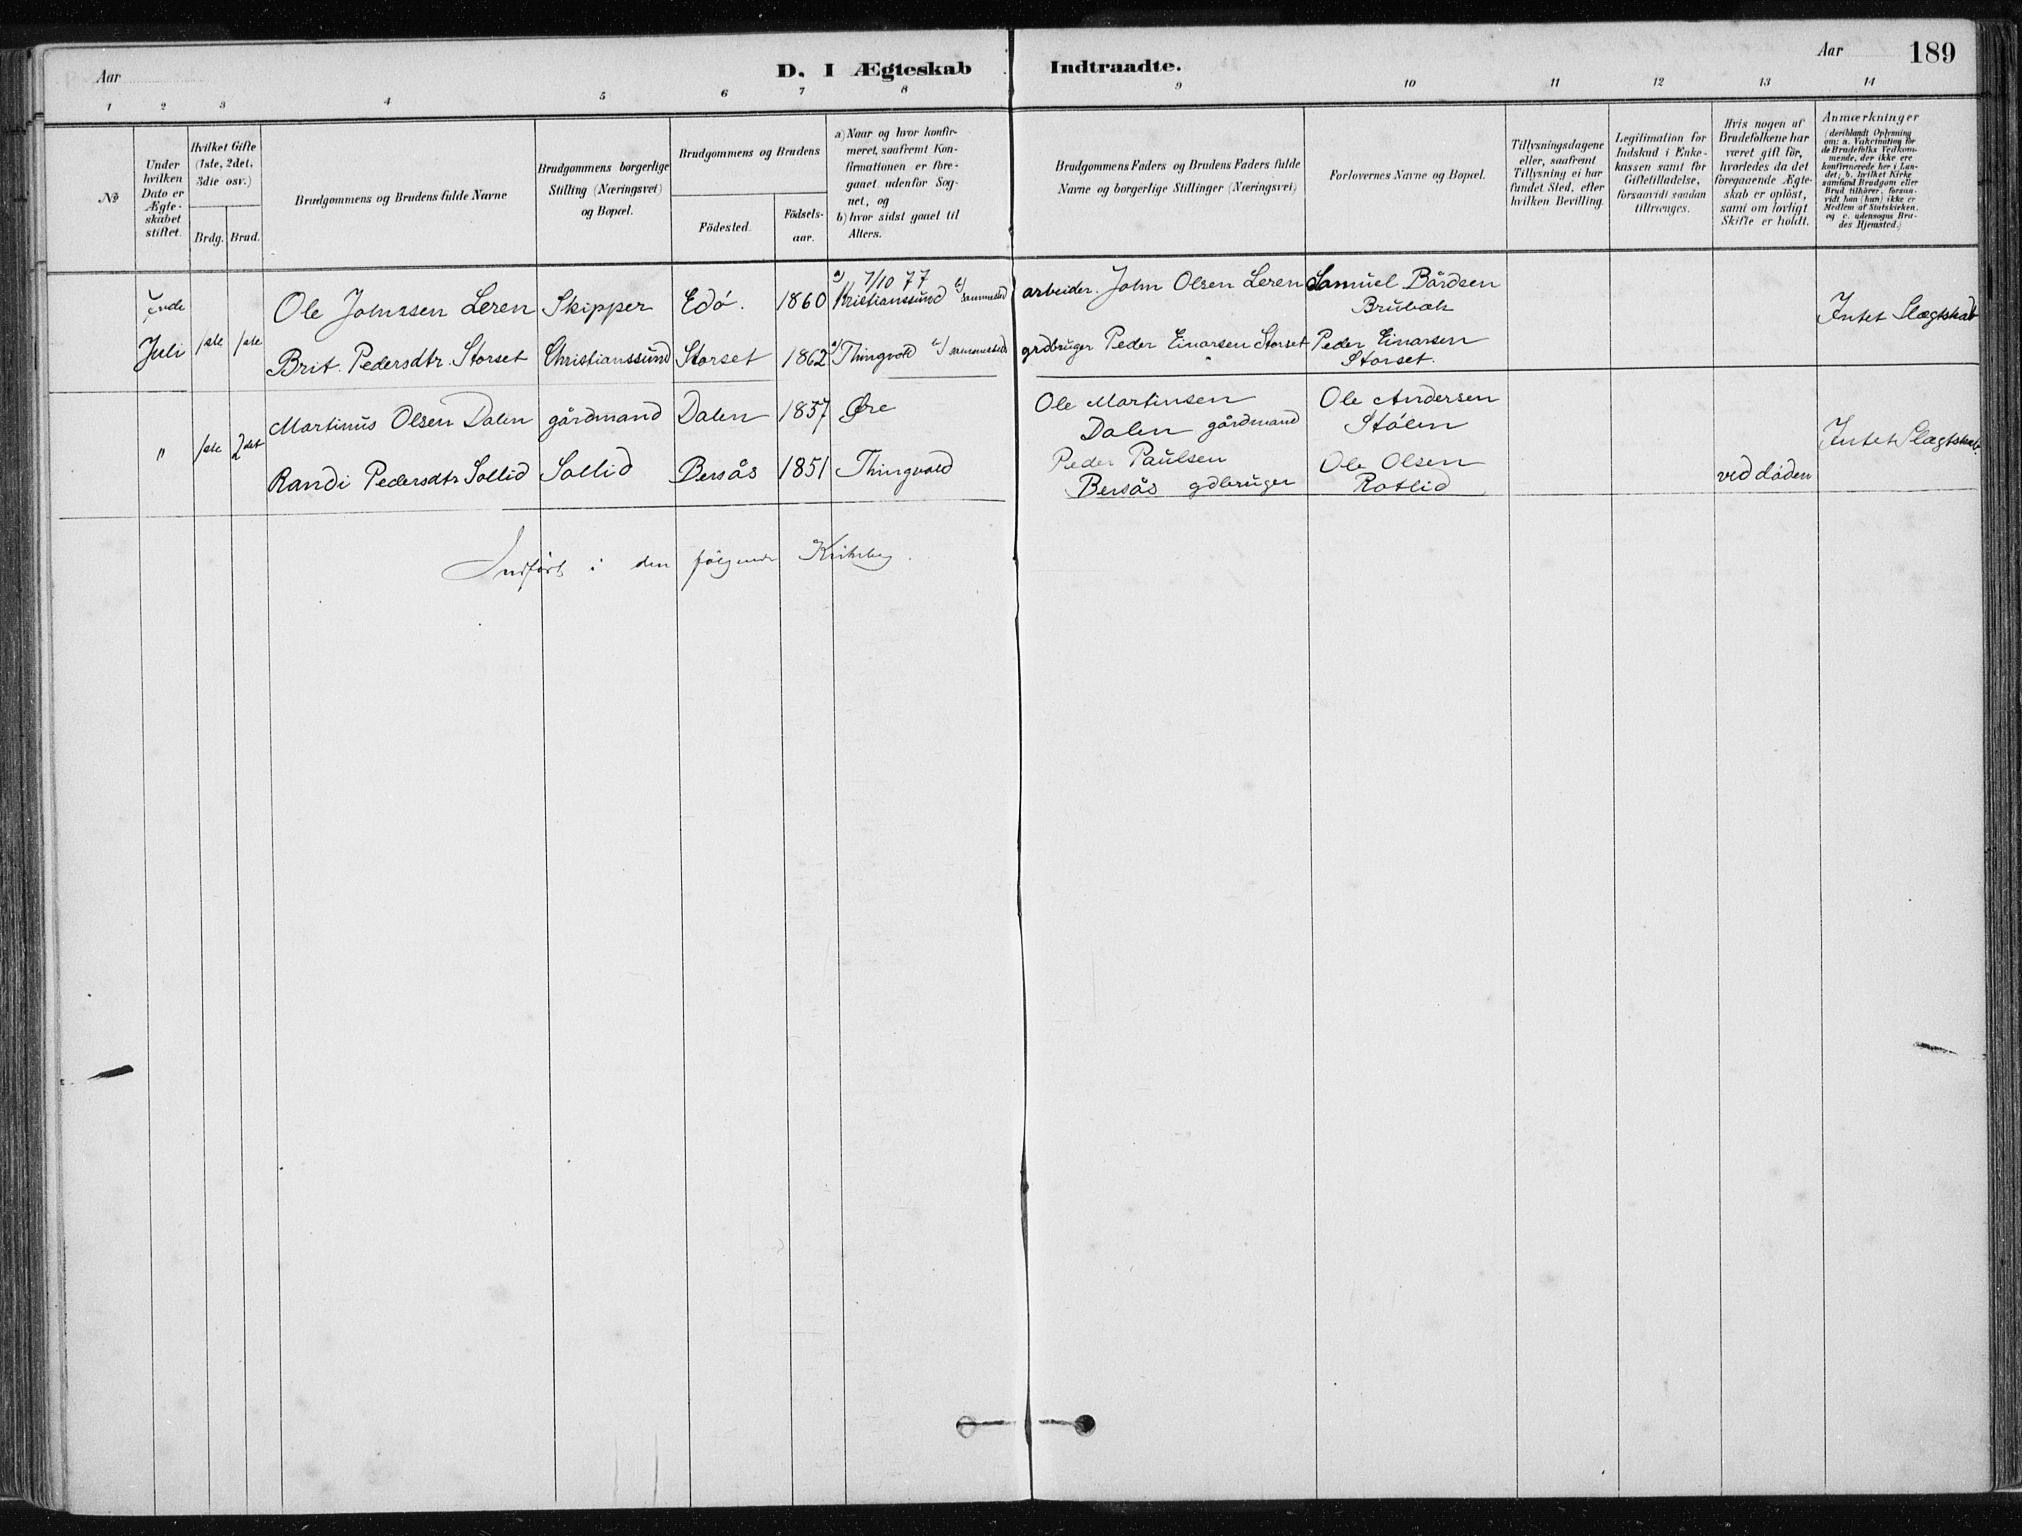 Aar
D. I Ægteskab Indtraadte.
Aar 189
1 2 3 4 5 6 7 8 9 10 11 12 13 14
No
Under
hvilken
Dato er
Ægte-
skabet
stiftet.
Hvilket Gifte
(1ste, 2det,
3die osv.)
Brdg. Brud.
Brudgommens og Brudens fulde Navne
Brudgommens borgerlige
Stilling (Næringsvei)
og Bopæl.
Brudgommens og Brudens
Födested.
Födsels-
aar.
a) Naar og hvor konfir-
meret, saafremt Kon-
firmationen er fore-
gaaet udenfor Sog-
net, og
b) hvor sidst gaaet til
Alters.
Brudgommens Faders og Brudens Faders fulde
Navne og borgerlige Stillinger (Næringsvei)
Forlovernes Navne og Bopæl.
Tillysningsdagene
eller, saafremt
Tillysning ei har
fundet Sted, efter
hvilken Bevilling.
Legitimation for
Indskud i Enke-
kassen samt for
Giftetilladelse,
forsaavidt saadan
tiltrænges.
Hvis nogen af
Brudefolkene har
været gift för,
hvorledes da det
foregaaende Ægte-
skab er oplöst,
samt om lovligt
Skifte er holdt.
Anmærkninger
(deriblandt Oplysning
om: a. Vakcination for
de Brudefolks Vedkom-
mende, der ikke ere
konfirmerede her i Lan-
det; b. hvilket Kirke-
samfund Brudgom eller
Brud tilhører, forsaa-
vidt han (hun) ikke er
Medlem af Statskirken,
og c. udensogns Bru-
des Hjemsted.)
Juli 1ste 1ste
Ole Johnssen Leren Skipper Edö. 1860 a) 7/10 77 Kristianssund b) sammested arbeider. John Olsen Leren Samuel Bårdsen
Brit. Pedersdtr. Storset Christianssund Storset 1862 a) Thingvold b) sammested grdbruger Peder Einarsen Storset Peder Einarsen
Storset.
Intet Slægtskab
" 1ste 2det
Martinus Olsen Dalen gårdmand Dalen 1857 Øre Ole Martinsen
Dalen gårdmand
Ole Andersen
Stölen
Randi Pedersdtr Sollid Sollid Bersås 1851 Thingvold Peder Paulsen
Bersås gdbruger
Ole Olsen
Rotlid
ved döden
Intet Slægtskab.
Indført i den følgende